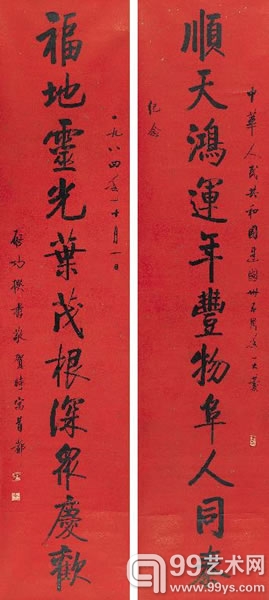 順天鴻運年豐物阜人同
中華人民共和國建國卅五周年大慶
紀念
福地靈光葉茂根深眾慶歡
一九八四年十月一日
啟功撰書敬賀時寓首都
99艺术网
www.99ys.com